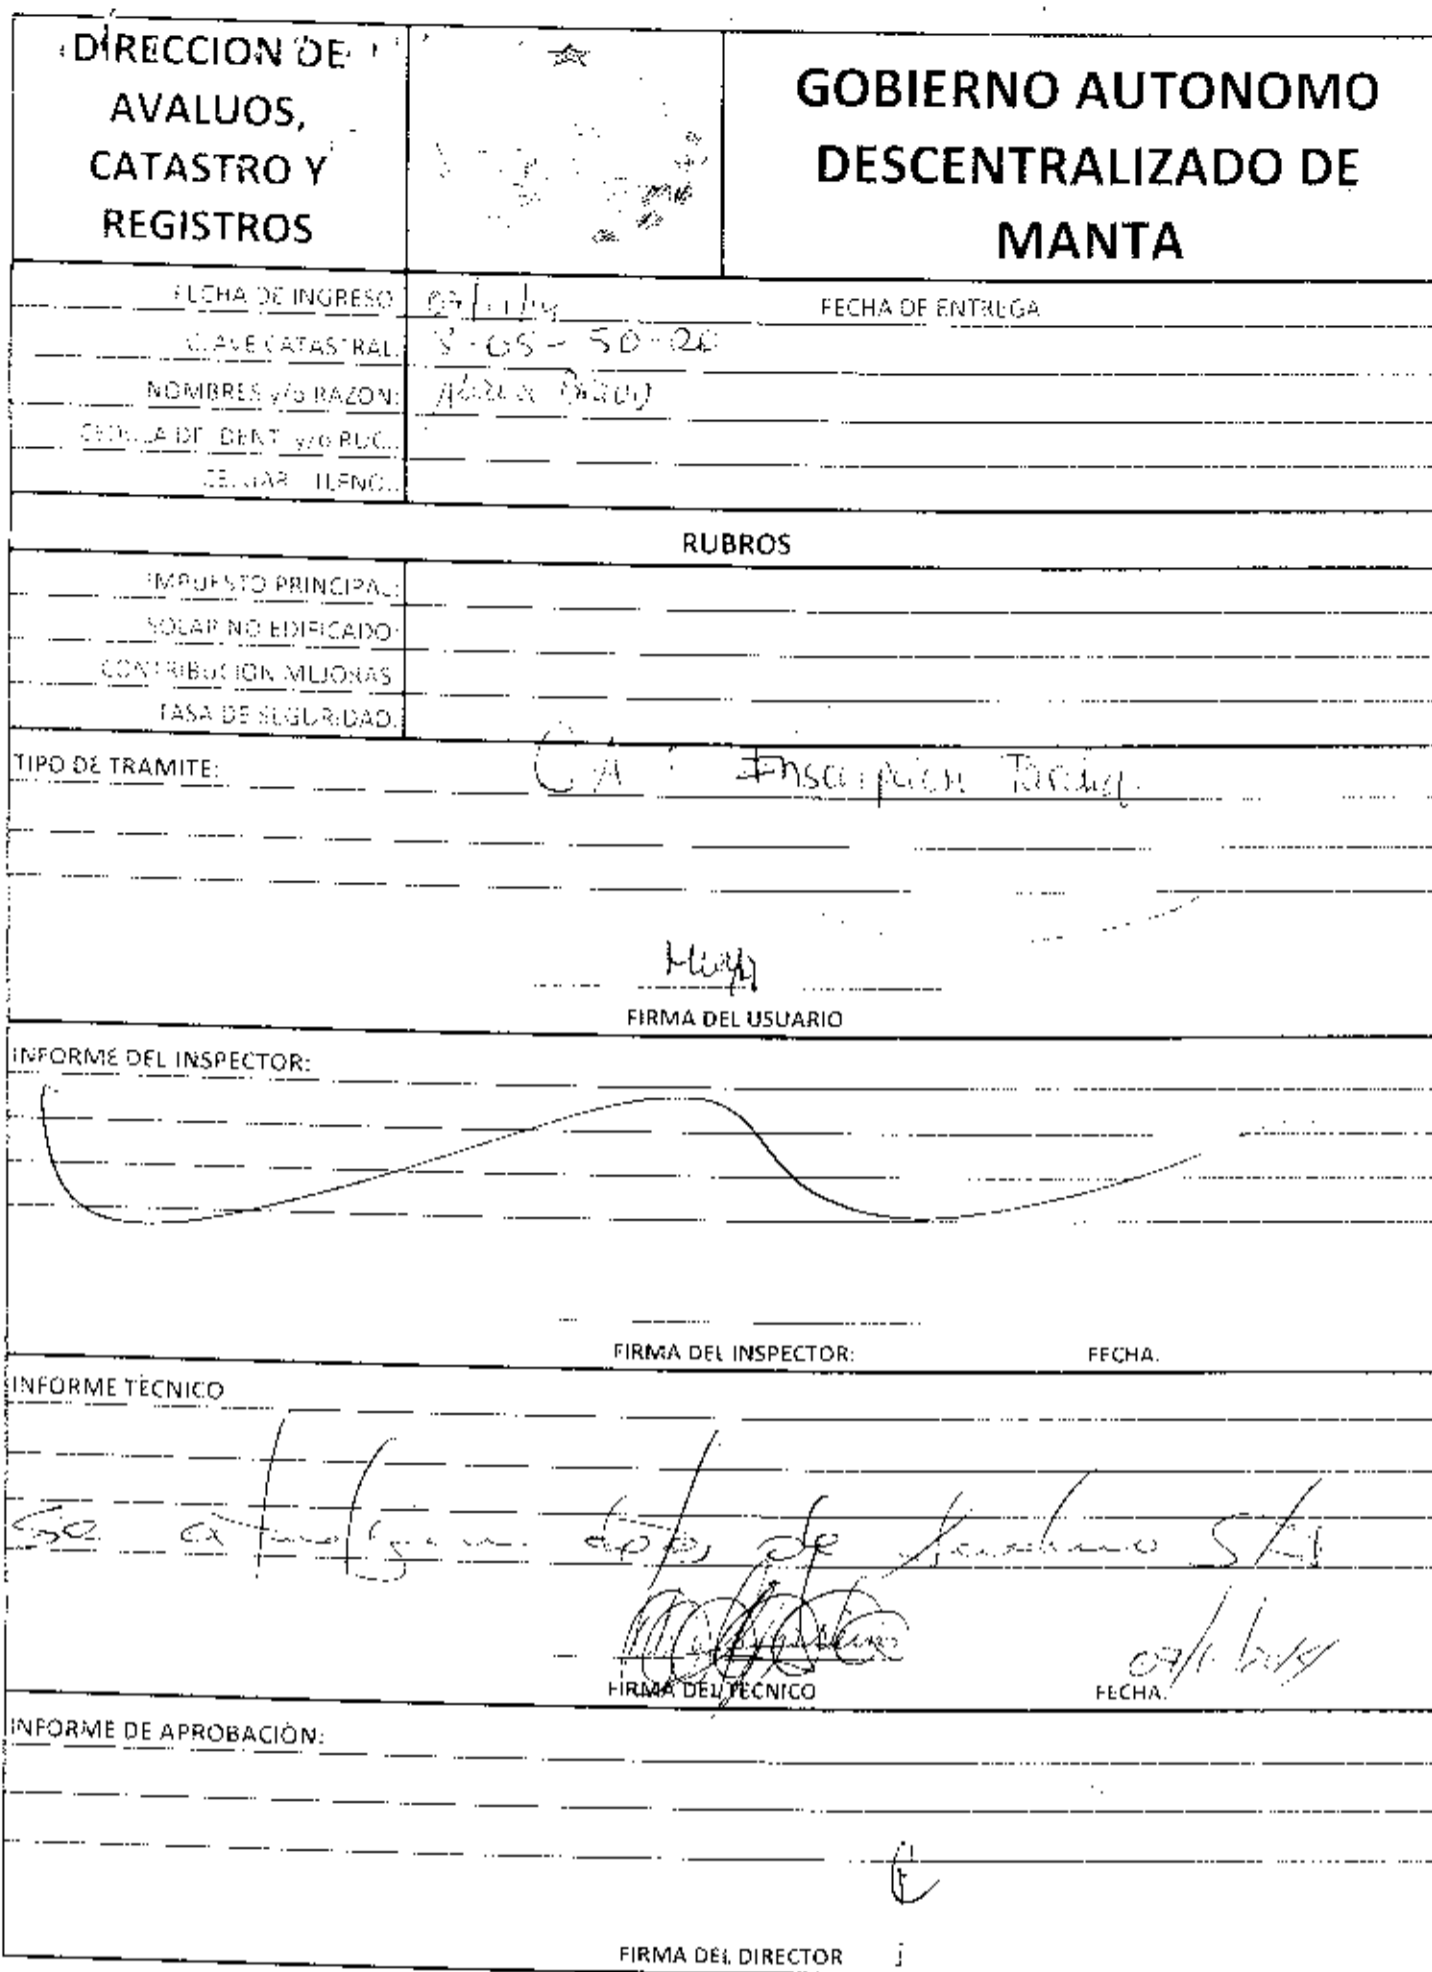 DIRECCION DE
AVALUOS,
CATASTRO Y
REGISTROS
GOBIERNO AUTONOMO
DESCENTRALIZADO DE
MANTA
FECHA DE INGRESO: 07/11/14 FECHA DE ENTREGA
CLAVE CATASTRAL: 3-05-50-20
NOMBRES y/o RAZON:
CEDULA DE IDENT. y/o RUC.:
CELULAR - TLFNO.:
RUBROS
IMPUESTO PRINCIPAL:
SOLAR NO EDIFICADO:
CONTRIBUCION MEJORAS
TASA DE SEGURIDAD:
TIPO DE TRAMITE: CA: Inscripción
FIRMA DEL USUARIO
INFORME DEL INSPECTOR:
FIRMA DEL INSPECTOR: FECHA:
INFORME TÈCNICO
Se de
07/11/2014
FIRMA DEL TECNICO FECHA:
INFORME DE APROBACIÒN:
FIRMA DEL DIRECTOR